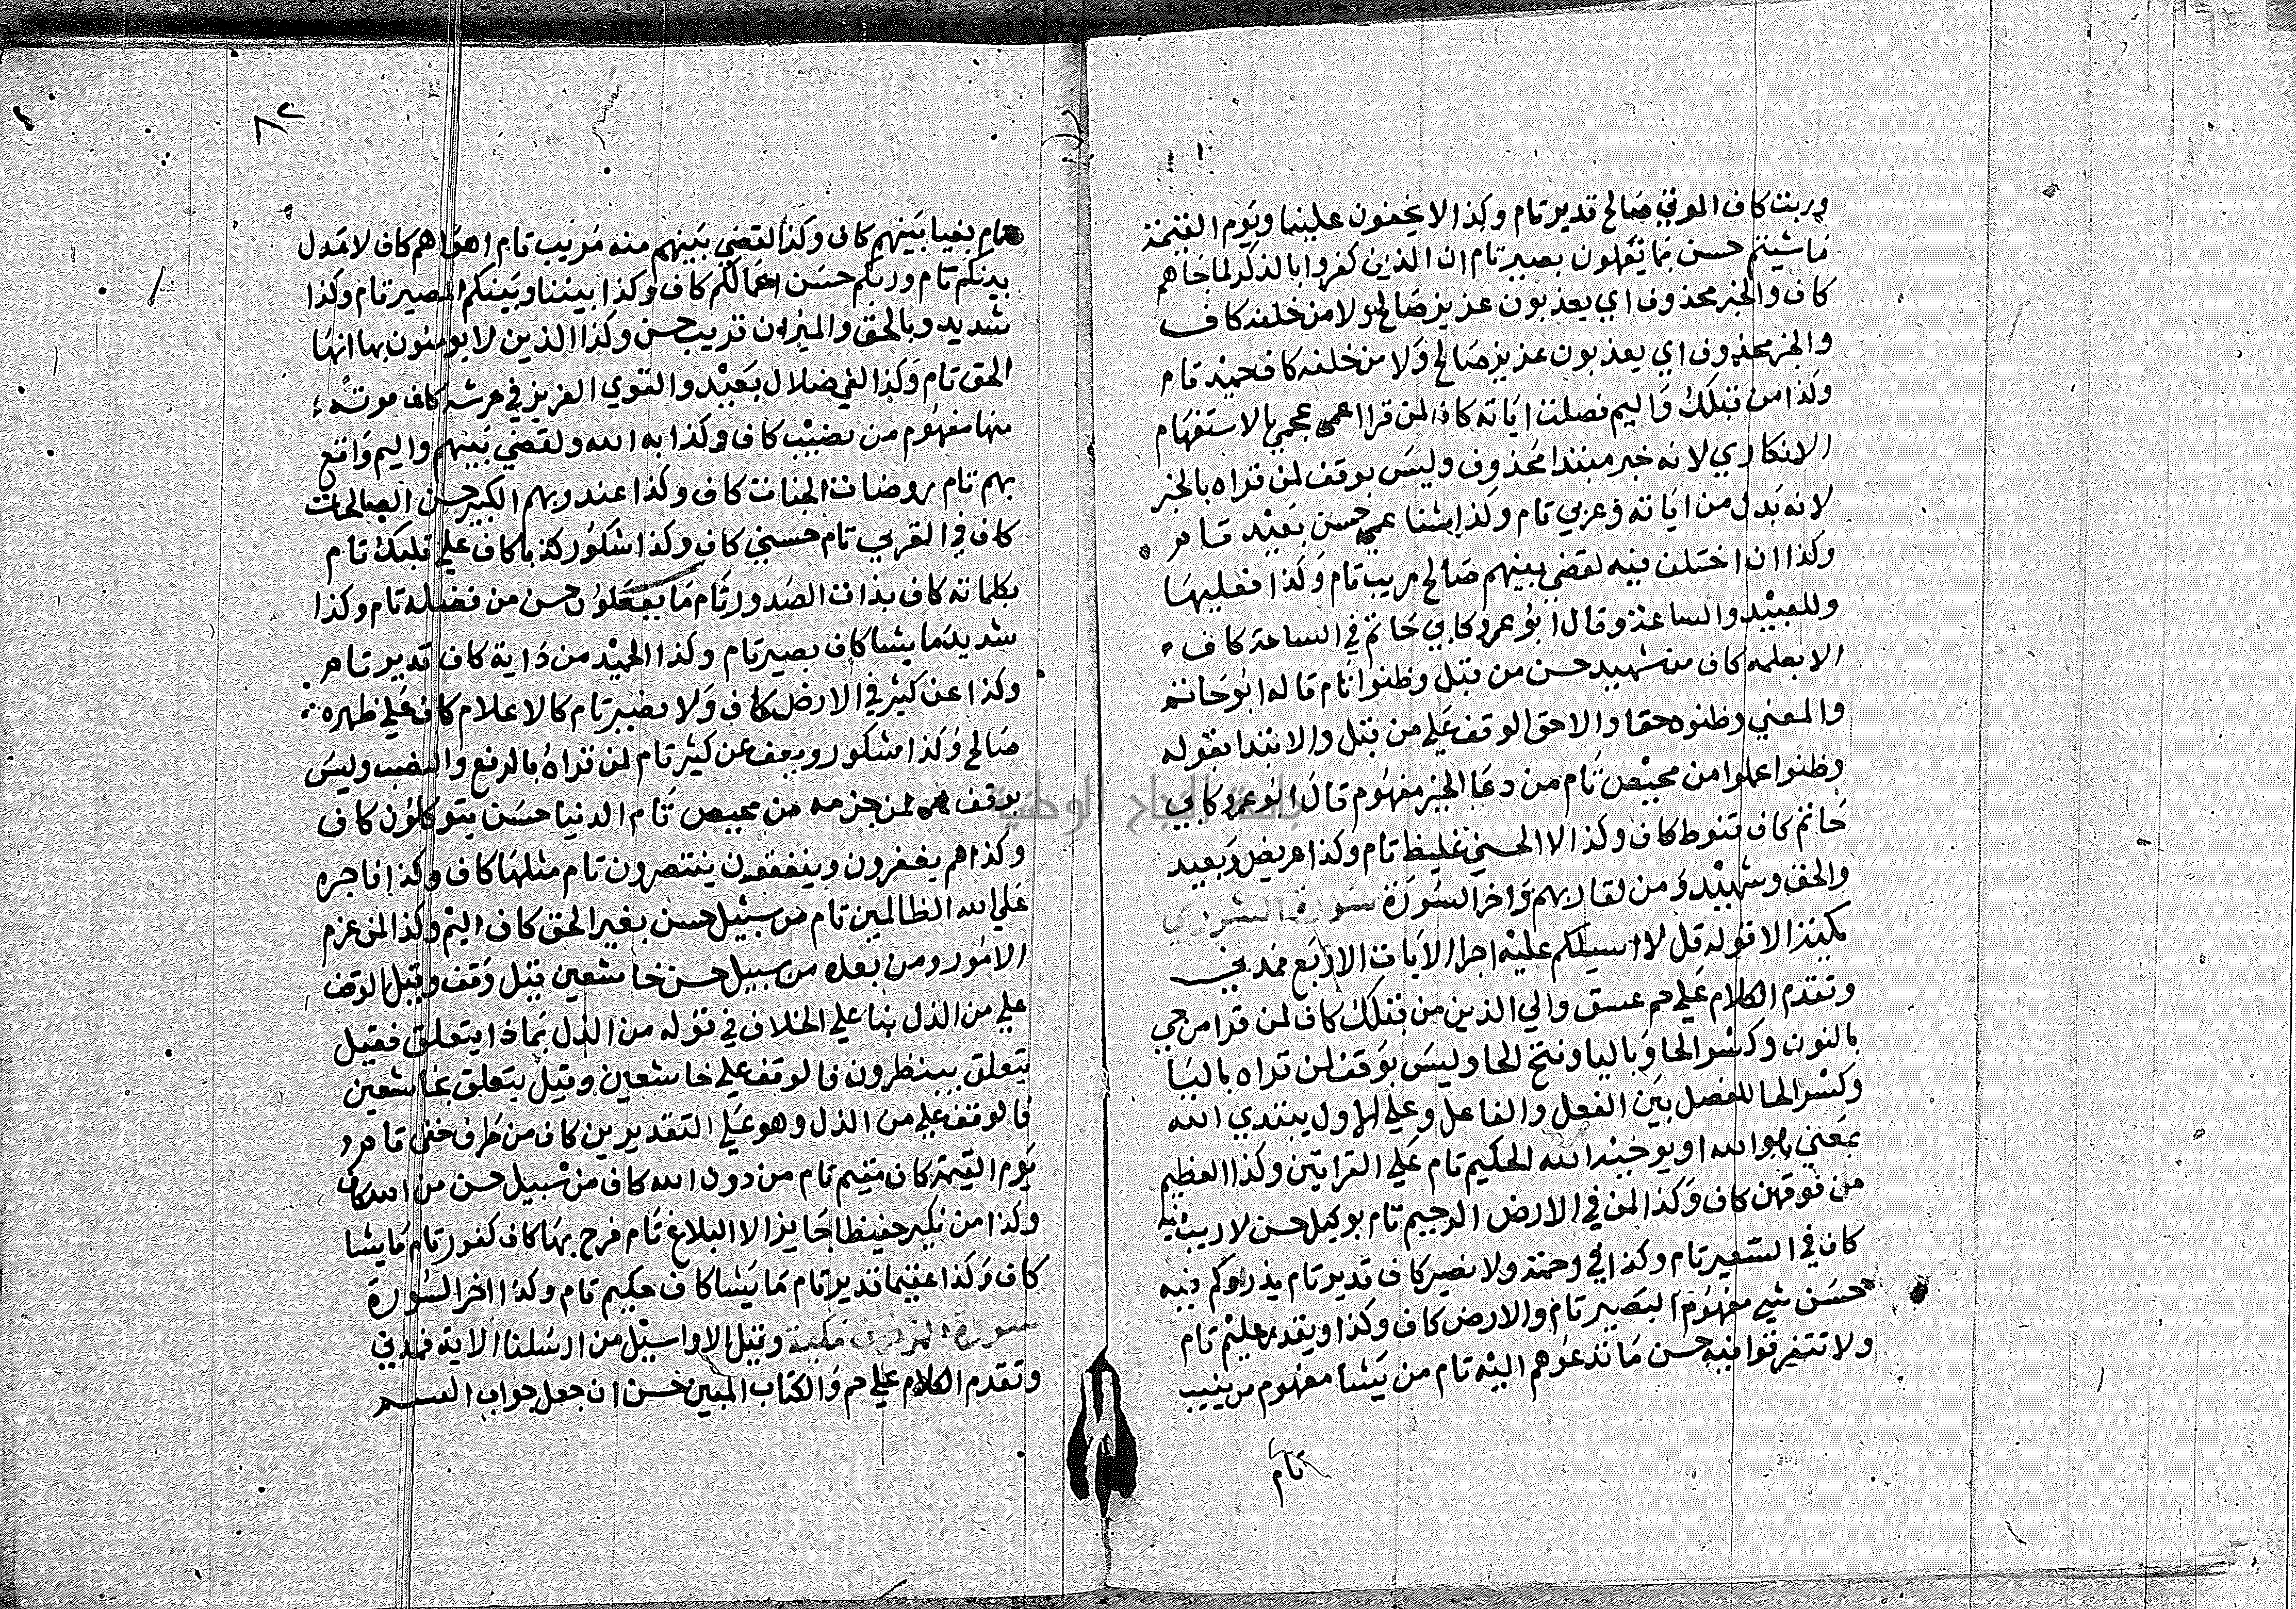 وربت كاف الموتي صالح قدير تام وكذا لا يخفون علينا ويوم القيمة
ما شيتم حسن بما تعملون بصير تام ان الذين كفروا بالذكر لما جاهم
كاف والخبر محذوف اي يعذبون عزيز صالح ولا من خلفه كاف
والخبر محذوف اي يعذبون عزيز صالح ولا من خلفه كاف حميد تام
وكذا من قبلك واليم فصلت اياته كاف لمن قرا اعجمي بالاستفهام
الانكاري لانه خبر مبتدا محذوف وليس بوقف لمن قراه بالخبر
لانه بدل من اياته وعربي تام وكذا وشفا عمي حسن بعيد تام
وكذا ان اختلف فيه لقضي بينهم صالح مريب تام وكذا فعليها
وللعبيد والساعة وقال ابو عمرو كابي حاتم في الساعة كاف
الا بعلمه كاف من شهيد حسن من قبل وظنوا تام قاله ابو حاتم
والمعني وظنوه حقا والاحق الوقف علي من قبل والابتدا بقوله
وظنوا علموا من محيص تام من دعا الخير مفهوم قال ابو عمرو كابي
حاتم كاف قنوط كاف وكذا لا الحسني غليظ تام وكذا عريض وبعيد
والحق وشهيد ومن لقا ربهم واخر السورة سورة الشوري
مكية الا قوله قل لا اسيلكم عليه اجرا الايات الاربع فمدني
وتقدم الكلام علي حم عسق والي الذين من قبلك كاف لمن قرا من حي
بالنون وكسر الحا وباليا وفتح الحا وليس بوقف لمن قراه باليا
وكسر الحا للفصل بين الفعل والفاعل وعلي الاول يبتدي الله
بمعني هو الله او يوحيه الله الحكيم تام علي القراتين وكذا العظيم
من فوقهن كاف وكذا لمن في الارض الرحيم تام بوكيل حسن لا ريب فيه
كاف في السعير تام وكذا في رحمته ولا نصير كاف قدير تام يذروكم فيه
حسن شي مفهوم البصير تام والارض كاف وكذا ويقدر عليم تام
ولا تتفرقوا فيه حسن ما تدعوهم اليه تام من يشا مفهوم من ينيب
تام
٨٢
تام بغيا بينهم كاف وكذا لقضي بينهم منه مريب تام اهواهم كاف لاعدل
بينكم تام وربكم حسن اعمالكم كاف وكذا بيننا وبينكم المصير تام وكذا
شديد وبالحق والميزان قريب حسن وكذا الذين لا يومنون بها انها
الحق تام وكذا لفي ضلال بعيد والقوي العزيز في حرثه كاف نوته
منها مفهوم من نصيب كاف وكذا به الله ولقضي بينهم واليم واقع
بهم تام روضات الجنات كاف وكذا عند ربهم الكبير حسن الصالحات
كاف في القربي تام حسني كاف وكذا شكور كذبا كاف علي قلبك تام
بكلماته كاف بذات الصدور تام ما يفعلون حسن من فضله تام وكذا
شديد ما يشا كاف بصير تام وكذا الحميد من دابة كاف قدير تام
وكذا عن كثير في الارض كاف ولا نصير تام كالاعلام كاف علي ظهره
صالح وكذا شكور ويعف عن كثير تام لمن قراه بالرفع والنصب وليس
بوقف لمن جزمه من محيص تام الدنيا حسن يتوكلون كاف
وكذا هم يغفرون وينفقون ينتصرون تام مثلها كاف وكذا فاجره
علي الله الظالمين تام من سبيل حسن بغير الحق كاف اليم وكذا لمن عزم
الامور ومن بعده من سبيل حسن خاشعين قيل وقف وقيل الوقف
علي من الذل بنا علي الخلاف في قوله من الذل بماذا يتعلق فقيل
يتعلق بينظرون فالوقف علي خاشعين وقيل يتعلق بخاشعين
فالوقف علي من الذل وهو علي التقديرين كاف من طرف خفي تام و
يوم القيمة كاف مقيم تام من دون الله كاف من سبيل حسن من الله كاف
وكذا من نكير حفيظا جايز الا البلاغ تام فرح بها كاف كفور تام ما يشا
كاف وكذا عقيما قدير تام ما يشا كاف حكيم تام وكذا اخر السورة
سورة الزخرف مكية وقيل الا واسيل من ارسلنا الاية فمدني
وتقدم الكلام علي حم والكتاب المبين حسن ان جعل جواب القسم
جامعة النجاح الوطنية